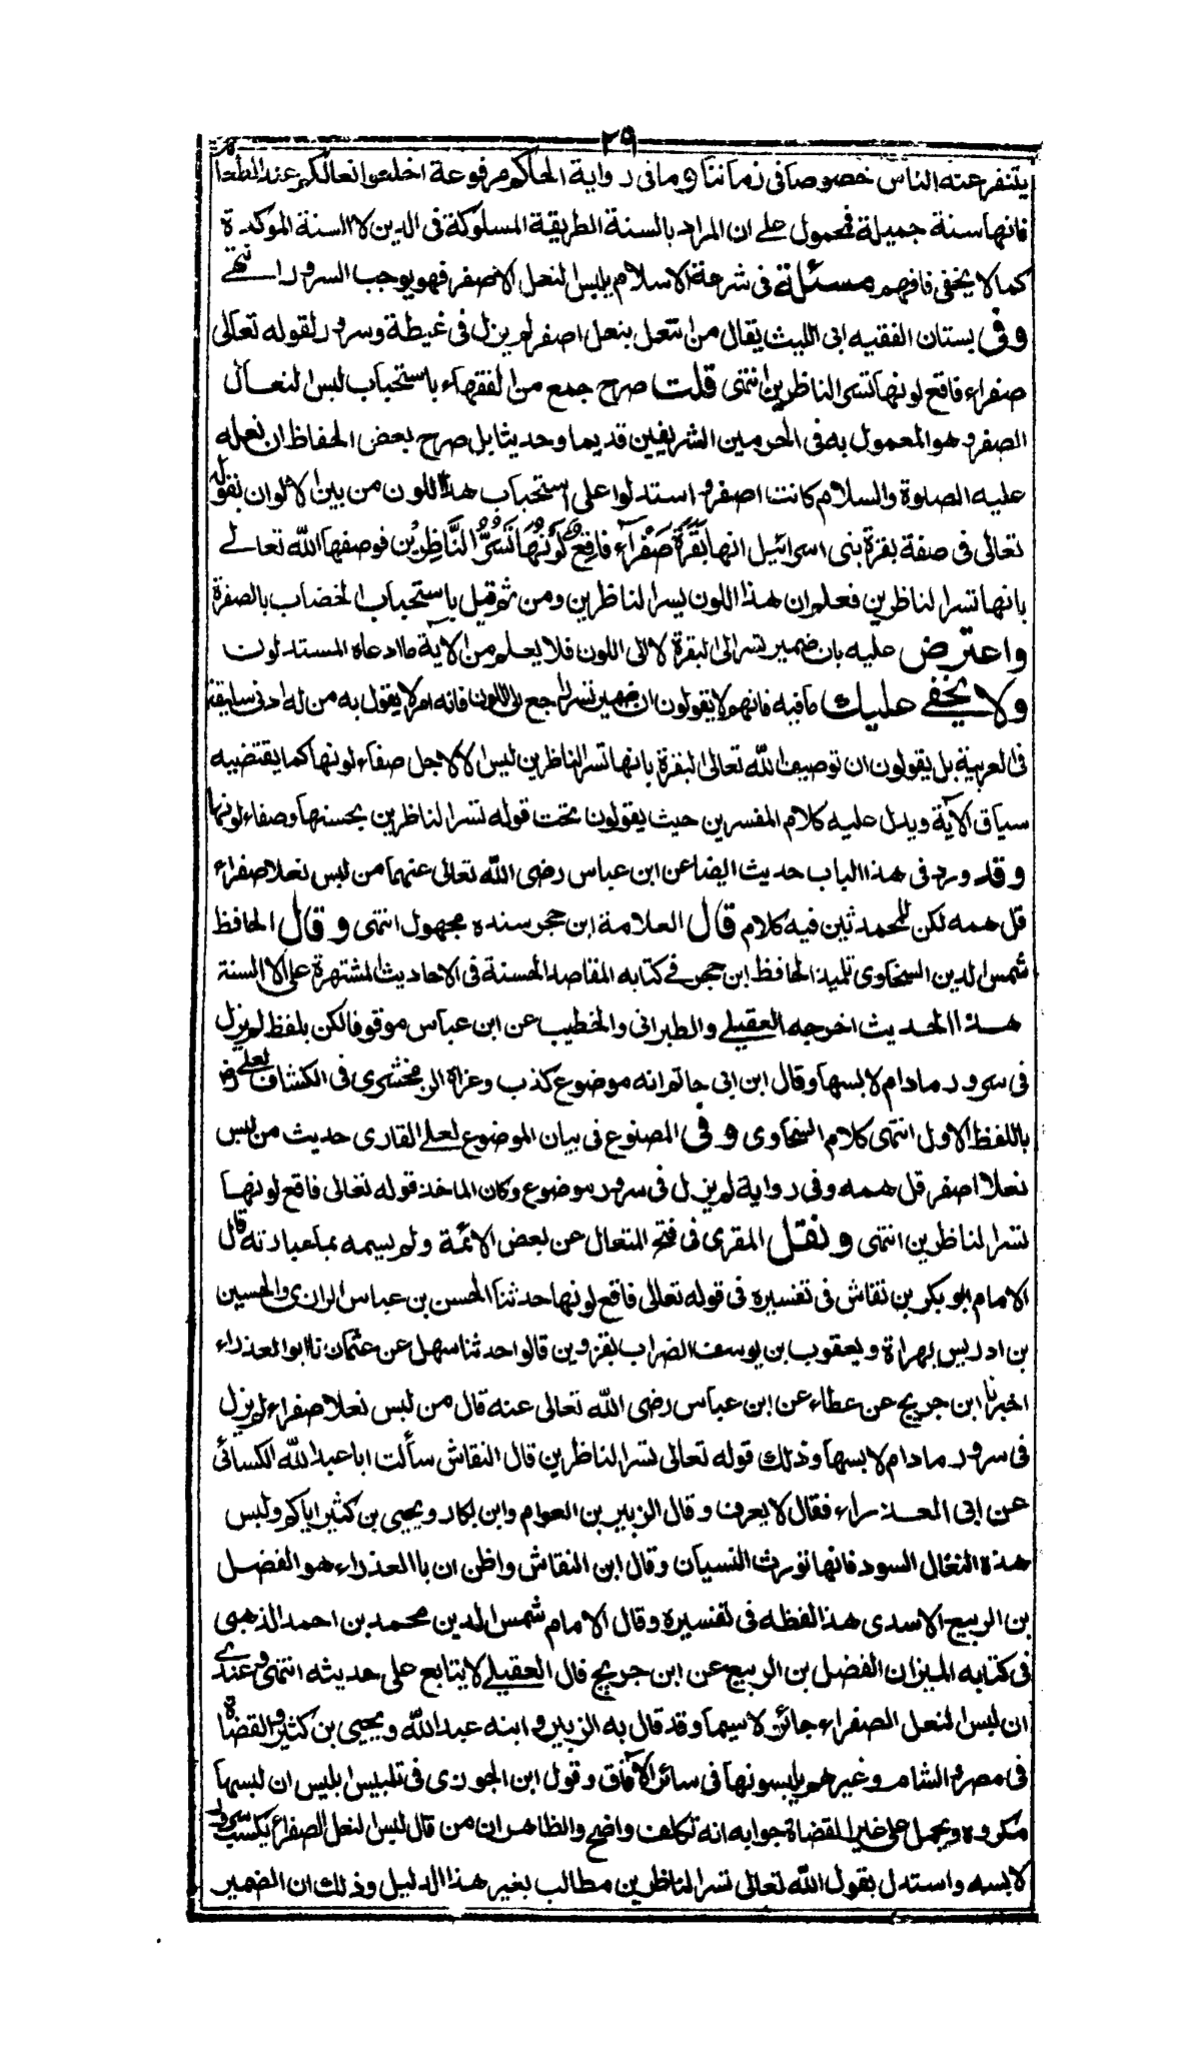 ٢٩
يتنفر عنه الناس خصوصا فى زماننا وما فى رواية الحاكم مرفوعة اخلعوا نعالكم عند الطعام
فانها سنة جميلة فمحمول على ان المراد بالسنة الطريقة المسلوكة فى الدين لا السنة الموكدة
كما لا يخفى فافهم مسئلة فى شرعة الاسلام يلبس النعل الاصفر فهو يوجب السرور انتهى
وفى بستان الفقيه ابى الليث يقال من انتعل بنعل اصفر لم يزل فى غبطة وسرور لقوله تعالى
صفراء فاقع لونها تسر الناظرين انتهى قلت صرح جمع من الفقهاء باستحباب لبس النعال
الصفر وهو المعمول به فى الحرمين الشريفين قديما وحديثا بل صرح بعض الحفاظ ان نعله
عليه الصلوة والسلام كانت اصفر واستدلوا على استحباب هذا اللون من بين الالوان بقوله
تعالى فى صفة بقرة بنى اسرائيل انها بَقَرَةٌ صَفْرَآءُ فَاقِعٌ لَوْنُهَا تَسُرُّ النَّاظِرِيْن فوصفها الله تعالى
بانها تسر الناظرين فعلم ان هذا اللون يسر الناظرين ومن ثم قيل باستحباب الخضاب بالصفرة
واعترض عليه بان ضمير تسر الى البقرة لا الى اللون فلا يعلم من الآية ما ادعاه المستدلون
ولا يخفى عليك ما فيه فانهم لا يقولون ان ضمير تسر راجع الى اللون فانه امر لا يقول به من له ادنى سليقة
فى العربية بل يقولون ان توصيف الله تعالى البقرة بانها تسر الناظرين ليس الا لاجل صفاء لونها كما يقتضيه
سياق الآية ويدل عليه كلام المفسرين حيث يقولون تحت قوله تسر الناظرين بحسنها وصفاء لونها
وقد ورد فى هذا الباب حديث ايضا عن ابن عباس رضى الله تعالى عنهما من لبس نعلا صفراء
قل همه لكن للمحدثين فيه كلام قال العلامة ابن حجر سنده مجهول انتهى وقال الحافظ
شمس الدين السخاوى تلميذ الحافظ ابن حجر فى كتابه المقاصد الحسنة فى الاحاديث المشتهرة على الالسنة
هذا الحديث اخرجه العقيلى والطبرانى والخطيب عن ابن عباس موقوفا لكن بلفظ لم يزل
فى سرور ما دام لابسها وقال ابن ابى حاتم انه موضوع كذب وعزاه الزمخشرى فى الكشاف لعلى رض
باللفظ الاول انتهى كلام السخاوى وفى المصنوع فى بيان الموضوع لعلى القارى حديث من لبس
نعلا اصفر قل همه وفى رواية لم يزل فى سرور موضوع وكان الماخذ قوله تعالى فاقع لونها
تسر الناظرين انتهى ونقل المقرى فى فتح المتعال عن بعض الائمة ولم يسمه بما عبارته قال
الامام ابو بكر بن نقاش فى تفسيره فى قوله تعالى فاقع لونها حدثنا الحسن بن عباس الرازى والحسين
بن ادريس بهراة ويعقوب بن يوسف الضراب بقزوين قالوا حدثنا سهل عن عثمان نا ابو العذراء
اخبرنا ابن جريج عن عطاء عن ابن عباس رضى الله تعالى عنه قال من لبس نعلا صفراء لم يزل
فى سرور ما دام لابسها وذلك قوله تعالى تسر الناظرين قال النقاش سألت ابا عبد الله الكسائى
عن ابى العذراء فقال لا يعرف وقال الزبير بن العوام وابن بكار ويحيى بن كثير اياكم ولبس
هذه النعال السود فانها تورث النسيان وقال ابن النقاش واظن ان ابا العذراء هو الفضل
بن الربيع الاسدى هذا لفظه فى تفسيره وقال الامام شمس الدين محمد بن احمد الذهبى
فى كتابه الميزان الفضل بن الربيع عن ابن جريج قال العقيلى لا يتابع على حديثه انتهى وعندى
ان لبس النعل الصفراء جائز لا سيما وقد قال به الزبير وابنه عبد الله ويحيى بن كثير والقضاة
فى مصر والشام وغيرهم يلبسونها فى سائر الآفاق وقول ابن الجوزى فى تلبيس ابليس ان لبسها
مكروه ويحمل على غير القضاة جوابه انه تكلف واضح والظاهر ان من قال لبس النعل الصفراء يكسب سرور
لابسه واستدل بقول الله تعالى تسر الناظرين مطالب بغير هذا الدليل وذلك ان الضمير